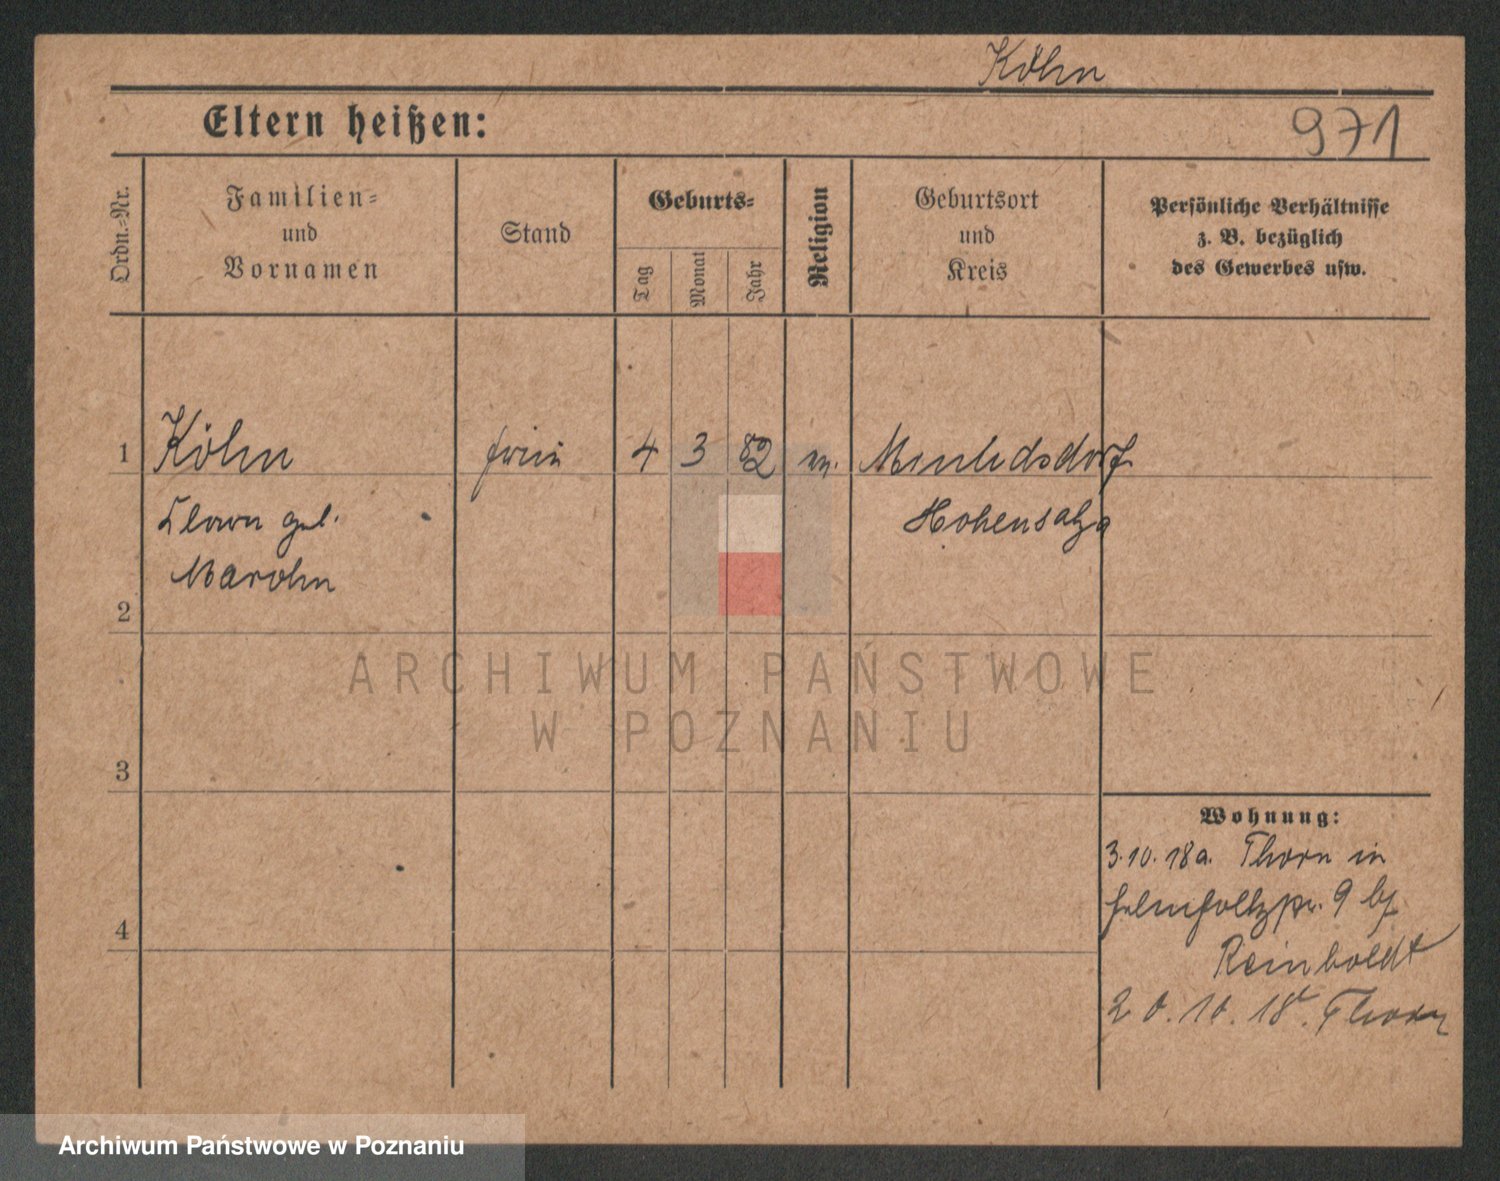 Köhn
Eltern heißen:
971
Ordn.-Nr.
Familien-
und
Vornamen
Stand
Geburts-
Tag
Monat
Jahr
Religion
Geburtsort
und
Kreis
Persönliche Verhältnisse
z. B. bezüglich
des Gewerbes usw.
1 Köhn 4 3 82
Hohensalza
geb.
Marohn
2
ARCHIWUM PAŃSTWOWE
W POZNANIU
3
Wohnung:
3.10.18 a. Thorn in
9 bei
4
Reinboldt
20.10.18 Thorn
Archiwum Państwowe w Poznaniu